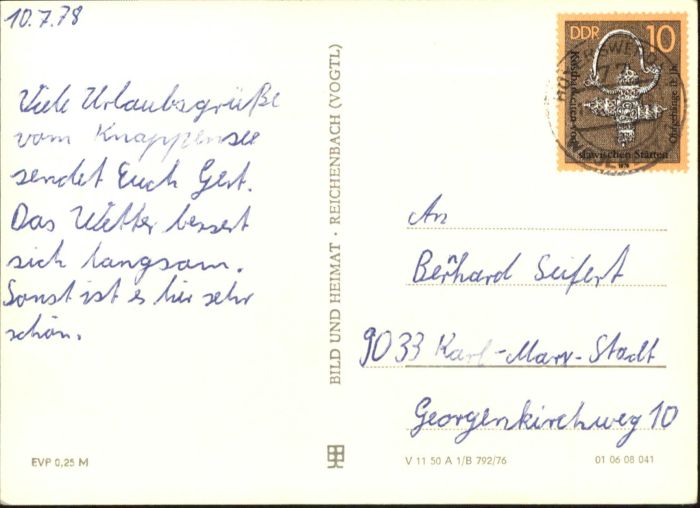 10.7.78
Viele Urlaubsgrüße
vom Knappensee
sendet Euch Gert.
Das Wetter bessert
sich langsam.
Sonst ist es hier sehr
schön.
BILD UND HEIMAT · REICHENBACH (VOGTL)
DDR 10
slawischen Stätten
An
Bernhard Seifert
9033 Karl-Marx-Stadt
Georgenkirchweg 10
EVP 0,25 M
V 11 50 A 1/B 792/76
01 06 08 041